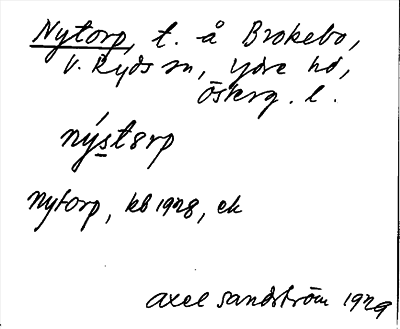 Nytorp, t. å Brokebo,
V. Ryds sn, Ydre hd,
Österg. l.
nýstorp
Nytorp, kb 1928, ek
Axel Sandström 1929